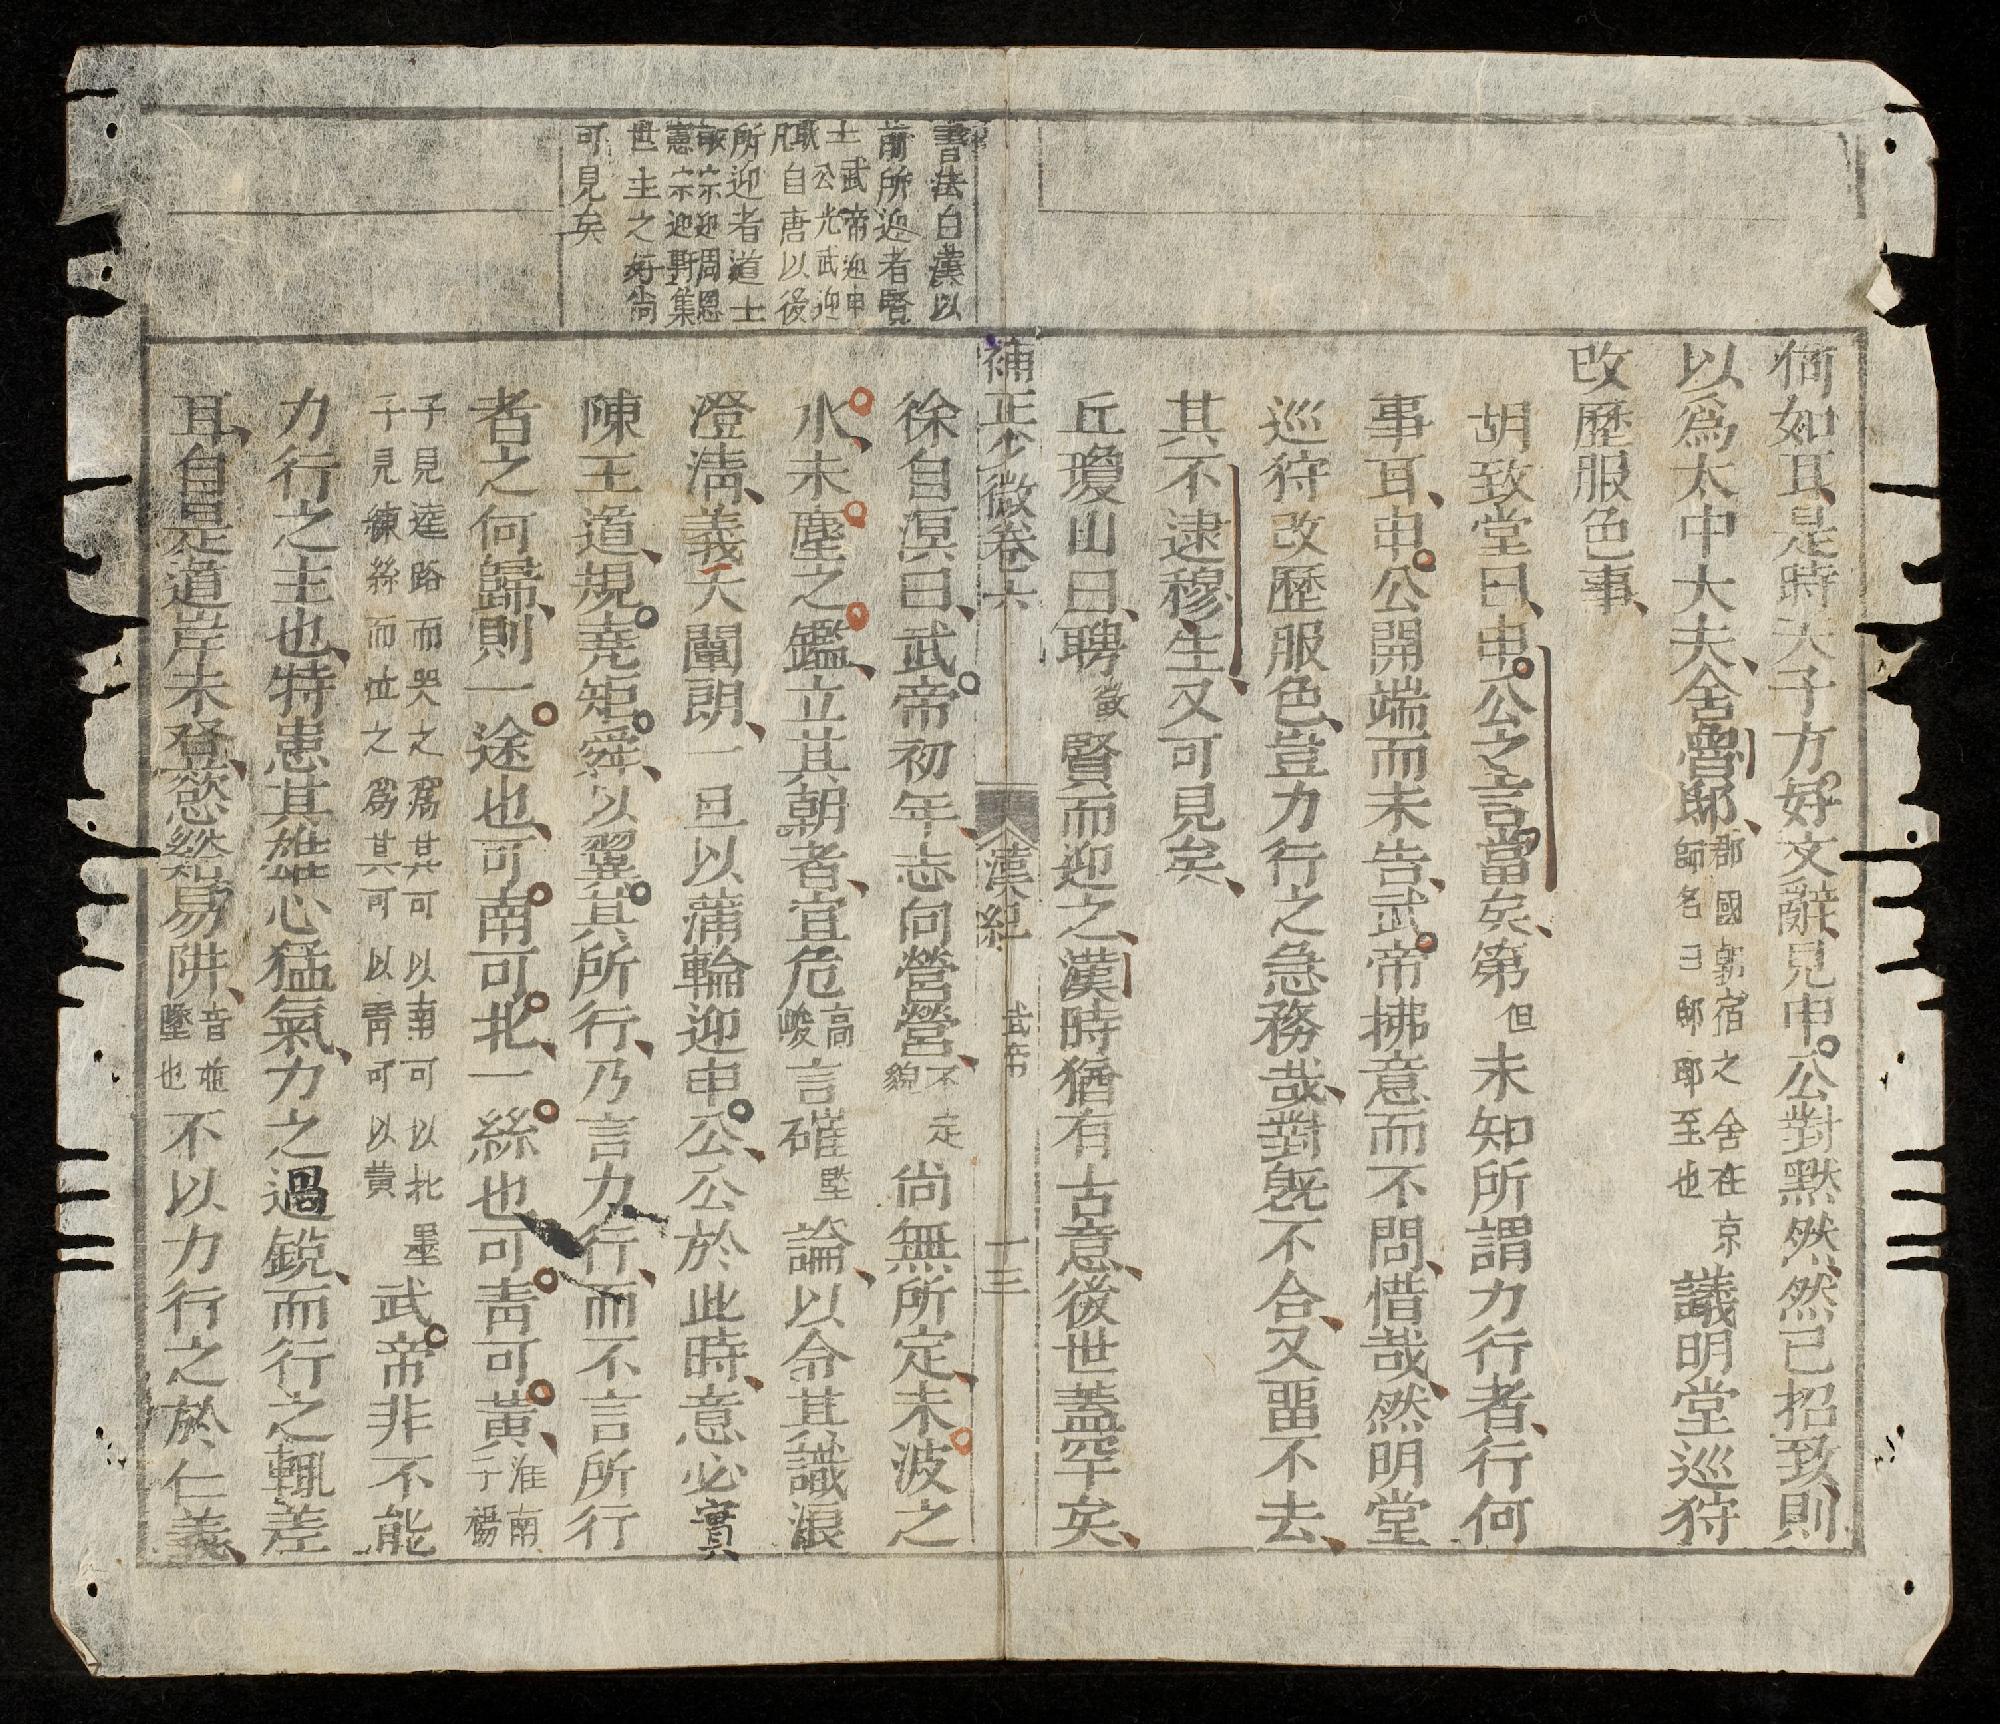 書法自漢以
前所迎者賢
士武帝迎申
公光武迎
自唐以後
所迎者道士
敬宗迎周恩
憲宗迎
世主之好尚
可見矣
何如耳是時天子方好文辭見申公對默然然已招致則
以爲太中大夫舍魯邸郡國朝宿之舍在京師名曰邸邸至也議明堂巡狩
改歷服色事
胡致堂曰申公之言當矣第但未知所謂力行者行何
事耳申公開端而未告武帝拂意而不問惜哉然明堂
巡狩改歷服色豈力行之急務哉對旣不合又畱不去
其不逮穆生又可見矣
丘瓊山曰聘徵賢而迎之漢時猶有古意後世蓋罕矣
補正少微卷六 漢紀 武帝 十三
徐自溟曰武帝初年志向營營不定貌尚無所定未波之
水未塵之鑑立其朝者宜危高峻言磪論以令其識浪
澄淸義天闡朗一旦以蒲輪迎申公公於此時意必實
陳王道規堯矩舜以翼其所行乃言力行而不言所行
者之何歸則一途也可南可北一絲也可靑可黃淮南子楊
子見逵路而哭之爲其可以南可以北墨
子見練絲而泣之爲其可以靑可以黃武帝非不能
力行之主也特患其雄心猛氣力之過銳而行之輒差
耳自是道岸未登慾易阱音墜也不以力行之於仁義